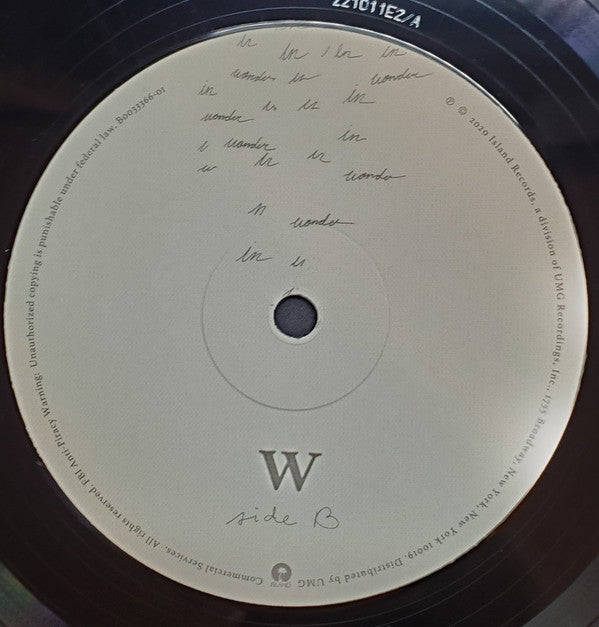 221011E2/A
in in in
in wonder is in wonder
wonder is is in
wonder in
in is wonder
in wonder
in is
W
side B
ISLAND
℗ © 2020 Island Records, a division of UMG Recordings, Inc., 1755 Broadway, New York, New York 10019. Distributed by UMG Commercial Services. All rights reserved. FBI Anti-Piracy Warning: Unauthorized copying is punishable under federal law. B0033366-01